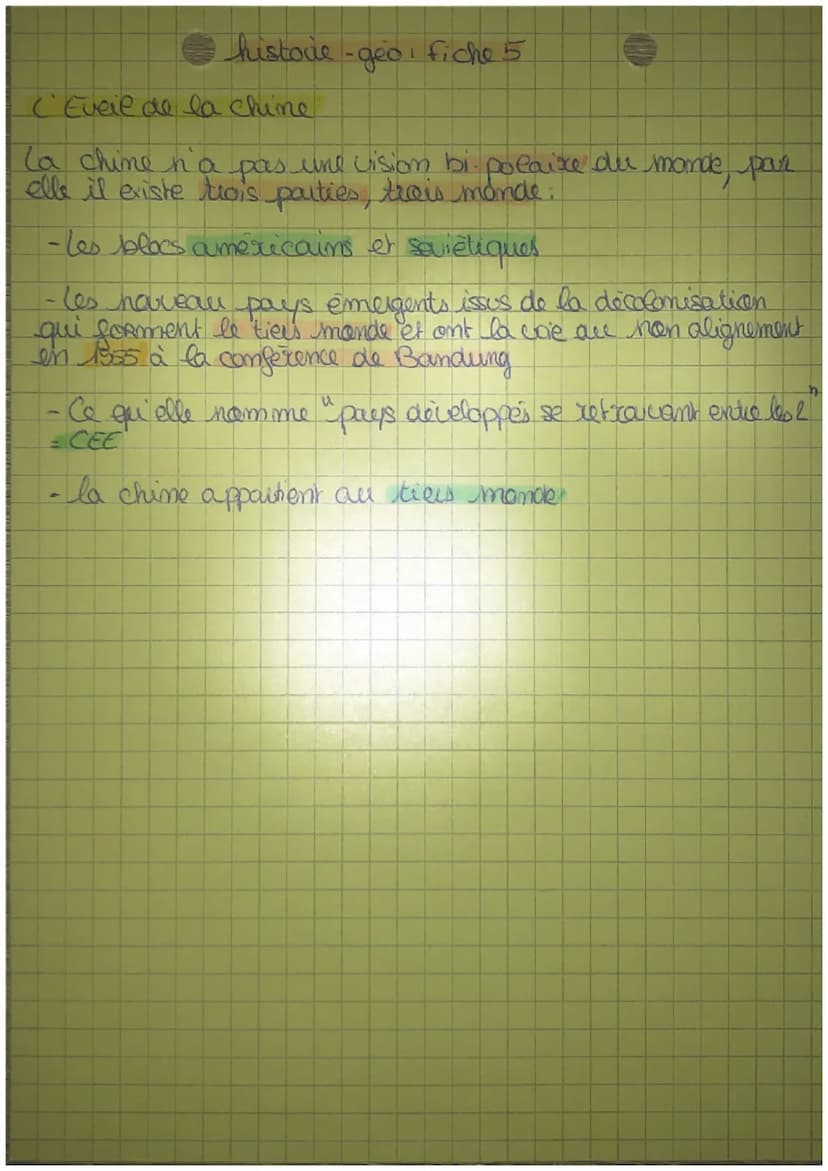 histoire-géo : fiche 5
L'Eveil de la Chine
La chine n'a pas une vision bi-polaire du monde, par
elle il existe trois parties, trois monde :
- Les blocs américains et soviétiques
- Les nouveau pays émergents issus de la décolonisation
qui forment le tiers monde et ont la voie au non alignement
en 1955 à la conférence de Bandung
- Ce qu'elle nomme "pays développés se retrouvant entre les 2"
= CEE
- la chine appartient au tiers monde